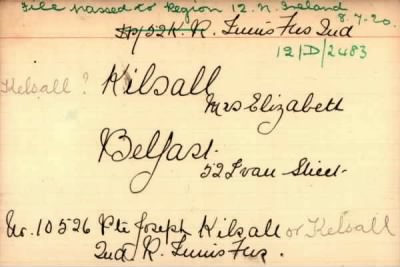 File passed to Region 12. N. Ireland
8.7.20.
R. Innis Fus 2nd
12/D/2483
Kelsall ?
Kilsall
Mrs Elizabeth
Belfast.
52 Ivan Street.
Nr. 10526 Pte Joseph Kilsall or Kelsall
2nd R. Innis Fus.